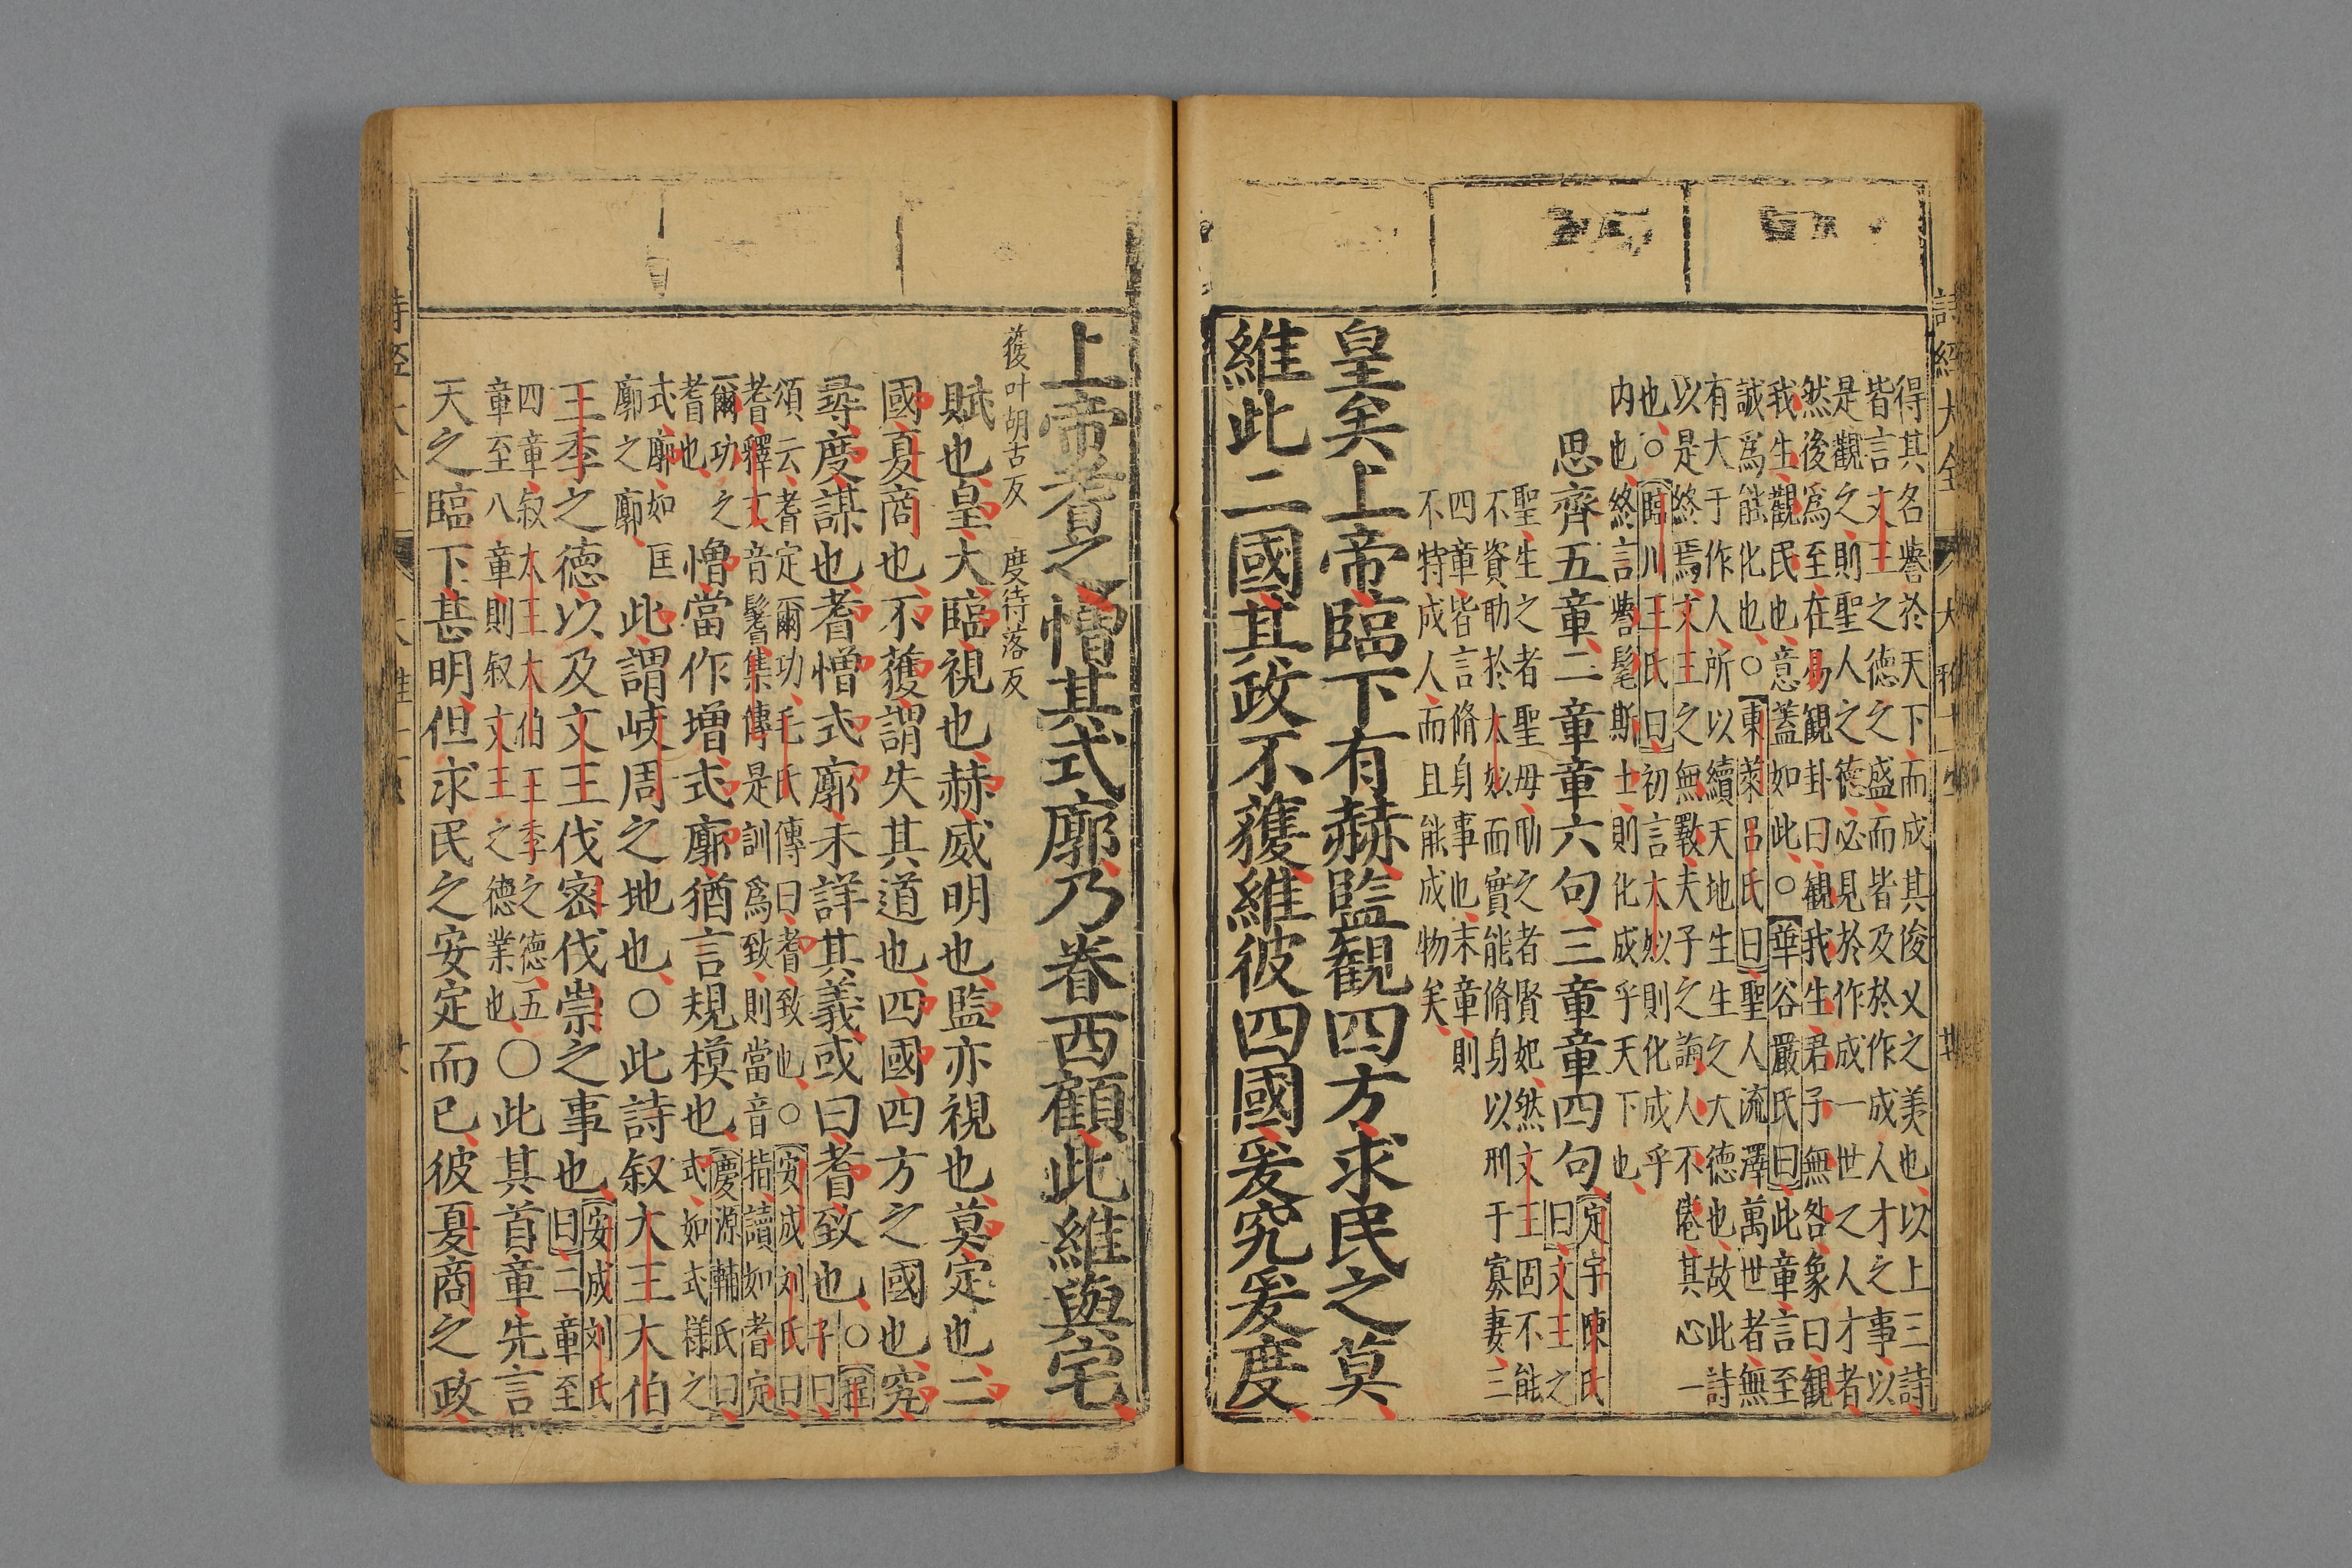 得其名譽於天下而成其俊乂之美也以上三詩
皆言文王之德之盛而皆及於作成人才之事以
是觀之則聖人之德必見於作成一世之人才者
然後爲至在易觀卦曰觀我生君子無咎象曰觀
我生觀民也意蓋如此○華谷嚴氏曰此章言至
誠爲能化也○東萊呂氏曰聖人流澤萬世者無
有大于作人所以續天地生生之大德也故此詩
以是終焉文王之無斁夫子之誨人不倦其心一
也○臨川王氏曰初言太姒則化成乎
内也終言譽髦斯士則化成乎天下也
思齊五章二章章六句三章章四句
定宇陳氏
曰文王之
聖生之者聖母助之者賢妃然文王固不能
不資助於太姒而實能脩身以刑于寡妻三
四章皆言脩身事也末章則
不特成人而且能成物矣
皇矣上帝臨下有赫監觀四方求民之莫
維此二國其政不獲維彼四國爰究爰度
上帝耆之憎其式廓乃眷西顧此維與宅
獲叶胡古反 度待落反
賦也皇大臨視也赫威明也監亦視也莫定也二
國夏商也不獲謂失其道也四國四方之國也究
尋度謀也耆憎式廓未詳其義或曰耆致也
○程
子曰
頌云耆定爾功毛氏傳曰耆致也○安成刘氏曰
耆釋文音鬐集傳是訓爲致則當音指讀如耆定
爾功之
耆也
憎當作增式廓猶言規模也
慶源輔氏曰
式如式樣之
式廓如匡
廓之廓
此謂岐周之地也○此詩叙大王大伯
王季之德以及文王伐密伐崇之事也
安成刘氏
曰二章至
四章叙太王大伯王季之德五
章至八章則叙文王之德業也
○此其首章先言
天之臨下甚明但求民之安定而已彼夏商之政